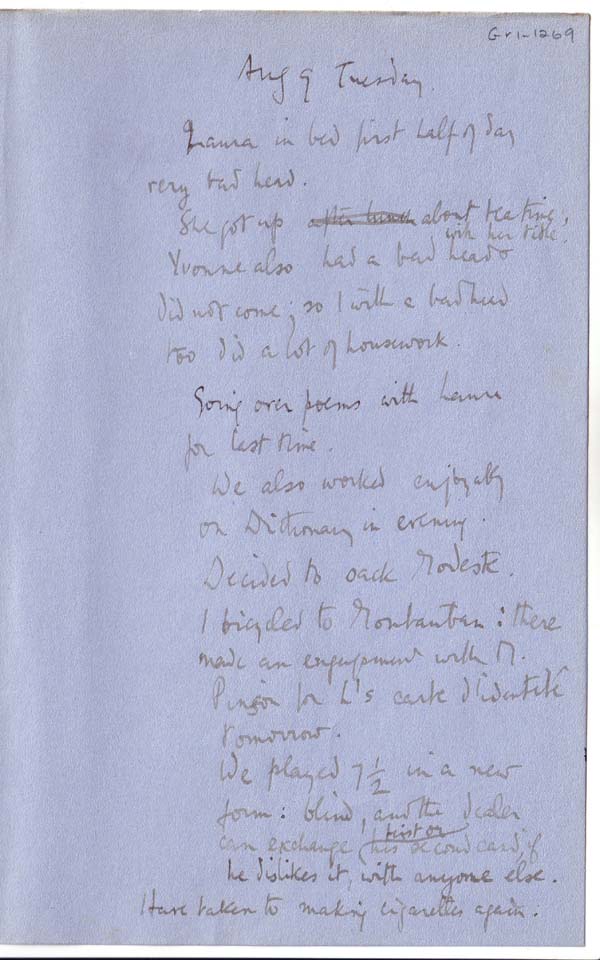 Gr1-1269
Aug 9 Tuesday.
Laura in bed first half of day
very bad head.
She got up after lunch about tea time;
with her title.
Yvonne also had a bad head &
did not come; so I with a bad head
too did a lot of housework.
Going over poems with Laura
for last time.
We also worked enjoyably
on Dictionary in evening.
Decided to sack Modeste.
I bicycled to Montauban: there
made an engagement with M.
Pinson for L's carte d'identité
tomorrow.
We played 7 1/2 in a new
form: blind, and the dealer
can exchange his first or second card, if
he dislikes it, with anyone else.
Have taken to making cigarettes again.